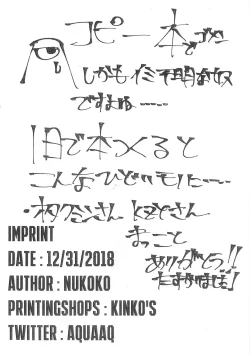 コピー本でゴメン
しかもイミ不明な奴
ですよね……
1日で本つくると
こんなひどいモノに……
まっこと
ありがとう!!
たすかりました!
IMPRINT
DATE : 12/31/2018
AUTHOR : NUKOKO
PRINTINGSHOPS : KINKO'S
TWITTER : AQUAAQ